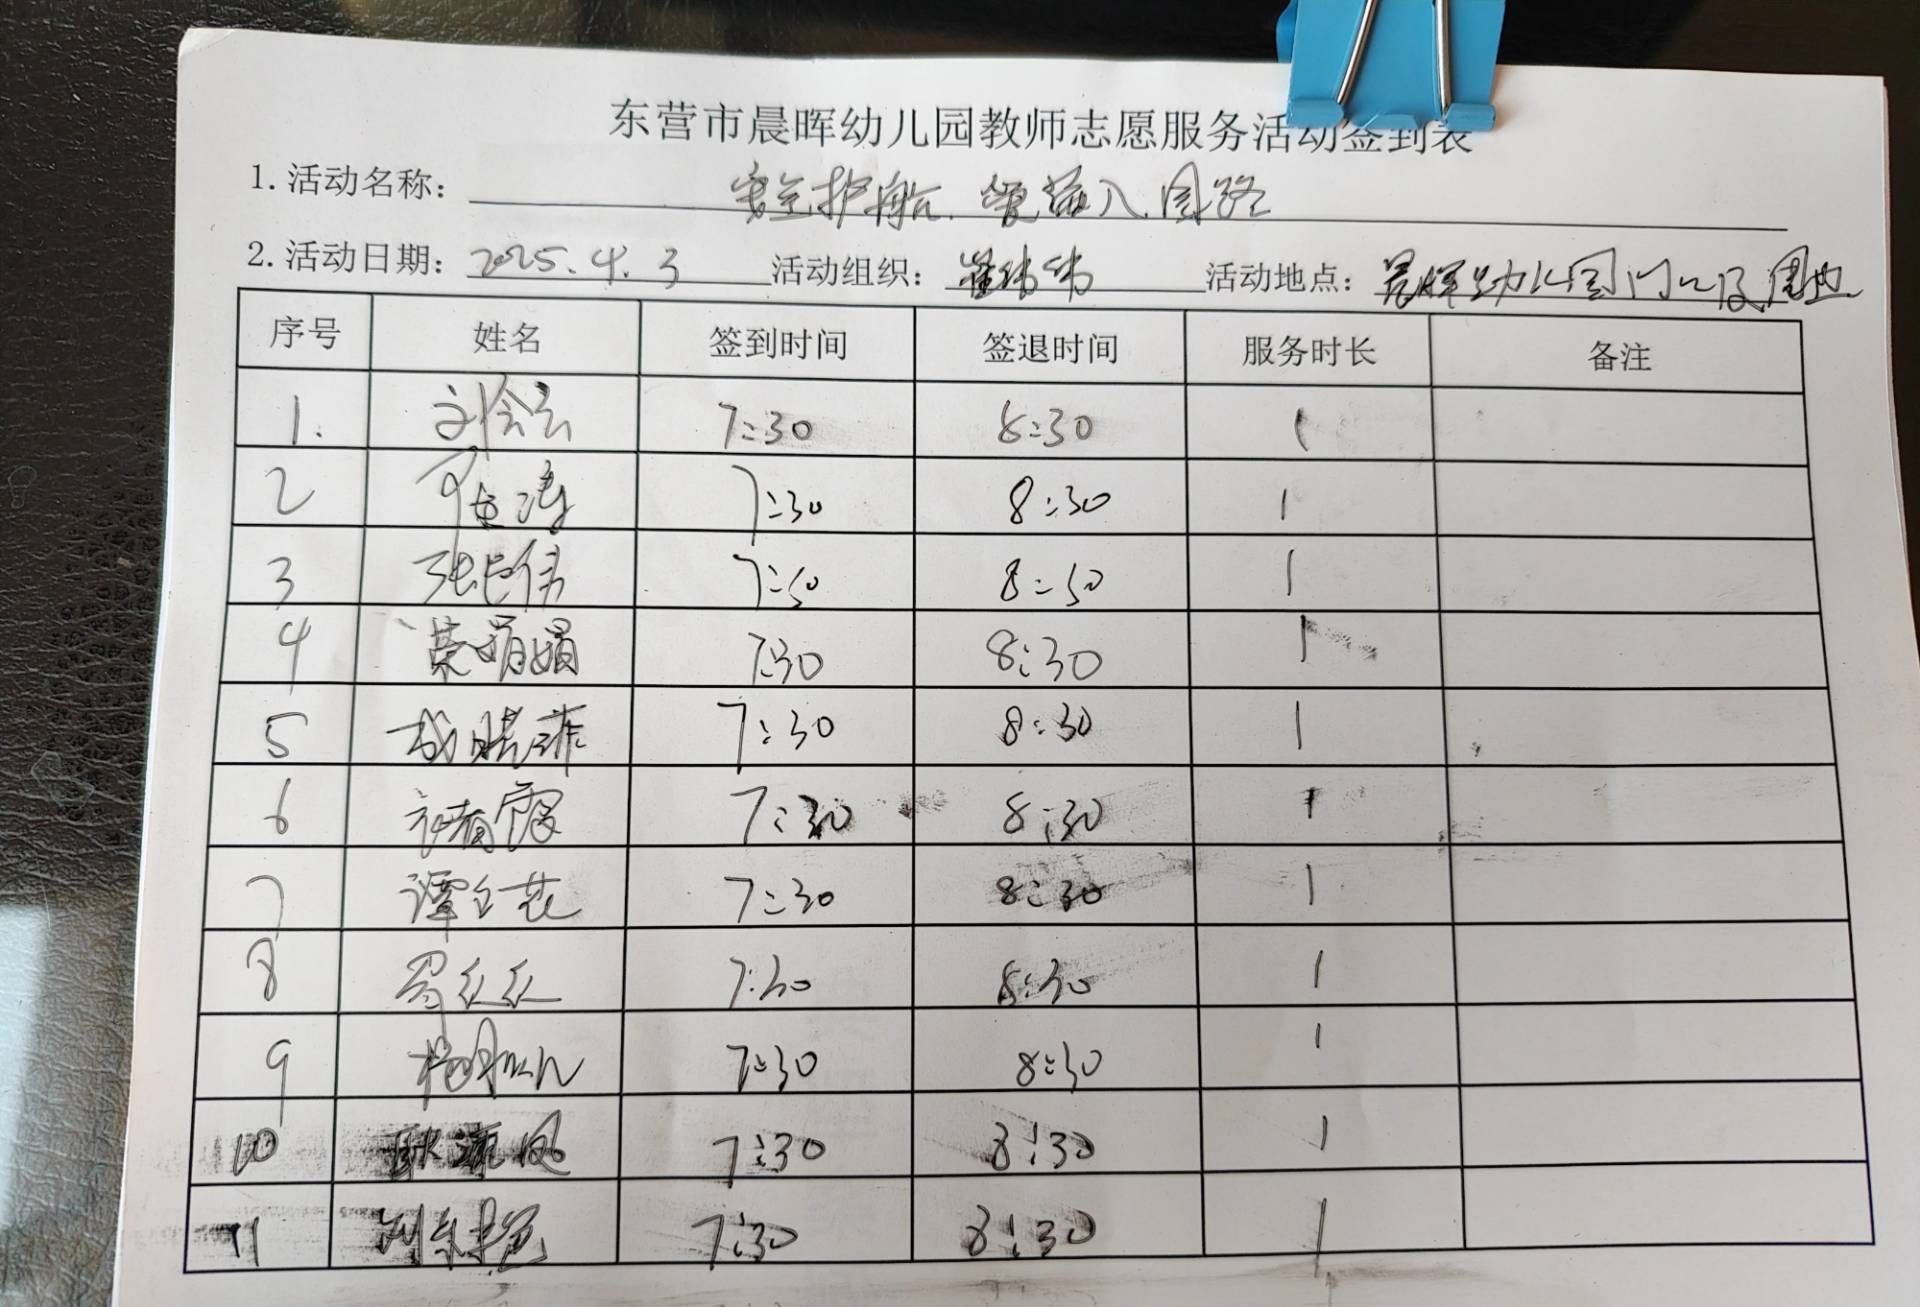 东营市晨晖幼儿园教师志愿服务活动签到表
1.活动名称： 安全护航 入园路
2.活动日期：2025.4.3 活动组织：崔伟伟 活动地点：晨晖幼儿园门口及周边
序号 姓名 签到时间 签退时间 服务时长 备注
1. 刘会云 7:30 8:30 1
2 7:30 8:30 1
3 张长伟 7:30 8:30 1
4 7:30 8:30 1
5 成晓菲 7:30 8:30 1
6 7:30 8:30 1
7 谭 花 7:30 8:30 1
8 红红 7:30 8:30 1
9 杨 7:30 8:30 1
10 耿 凤 7:30 8:30 1
11 7:30 8:30 1